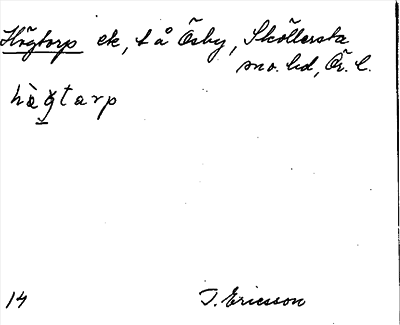 Högtorp ek, t å Ösby, Sköllersta
sno. hd, Ör. l.
hò̜gtarp
14 T. Ericsson